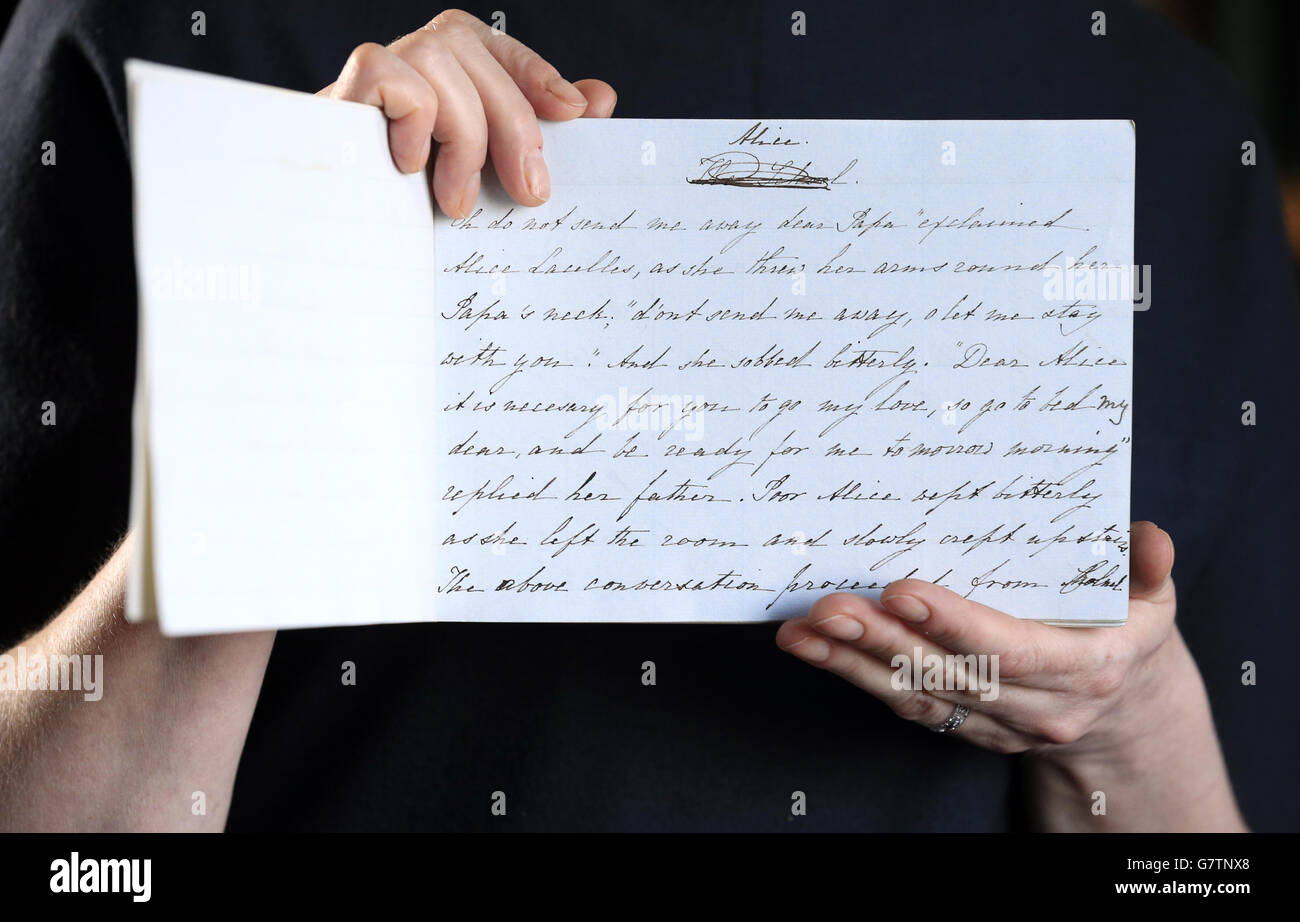 Alice.
Oh do not send me away dear Papa" exclaimed
Alice Lacelles, as she threw her arms round her
Papa's neck; "d'ont send me away, o let me stay
with you". And she sobbed bitterly. "Dear Alice
it is necesary for you to go my love, so go to bed my
dear, and be ready for me tomorrow morning"
replied her father. Poor Alice wept bitterly
as she left the room and slowly crept upstairs.
The above conversation proceeded from Colonel
alamy
alamy
a
alamy
Image ID: G7TNX8
www.alamy.com